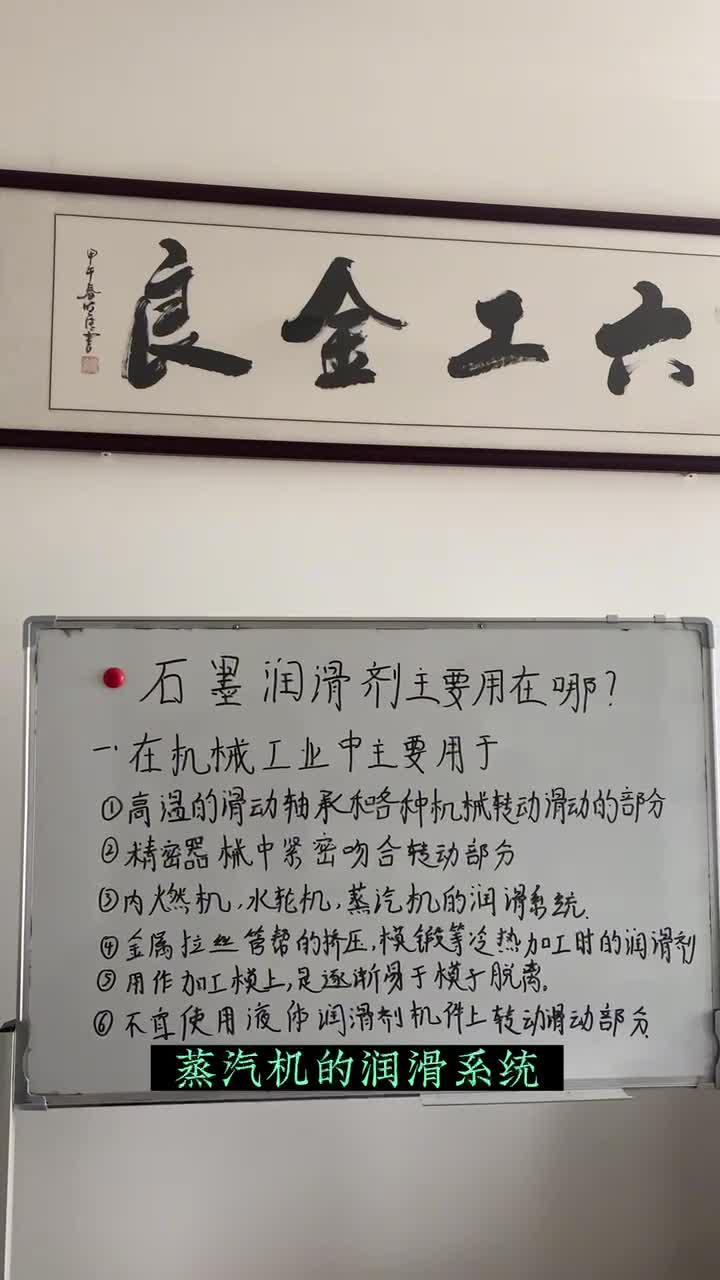 六工金良
甲午春
石墨润滑剂主要用在哪？
一.在机械工业中主要用于
①高温的滑动轴承和各种机械转动滑动的部分
②精密器械中紧密吻合转动部分
③内燃机,水轮机,蒸汽机的润滑系统.
④金属拉丝管帮的挤压,模锻等冷热加工时的润滑剂
⑤用作加工模上,是逐渐易于模子脱离.
⑥不宜使用液体润滑剂机件上转动滑动部分.
蒸汽机的润滑系统